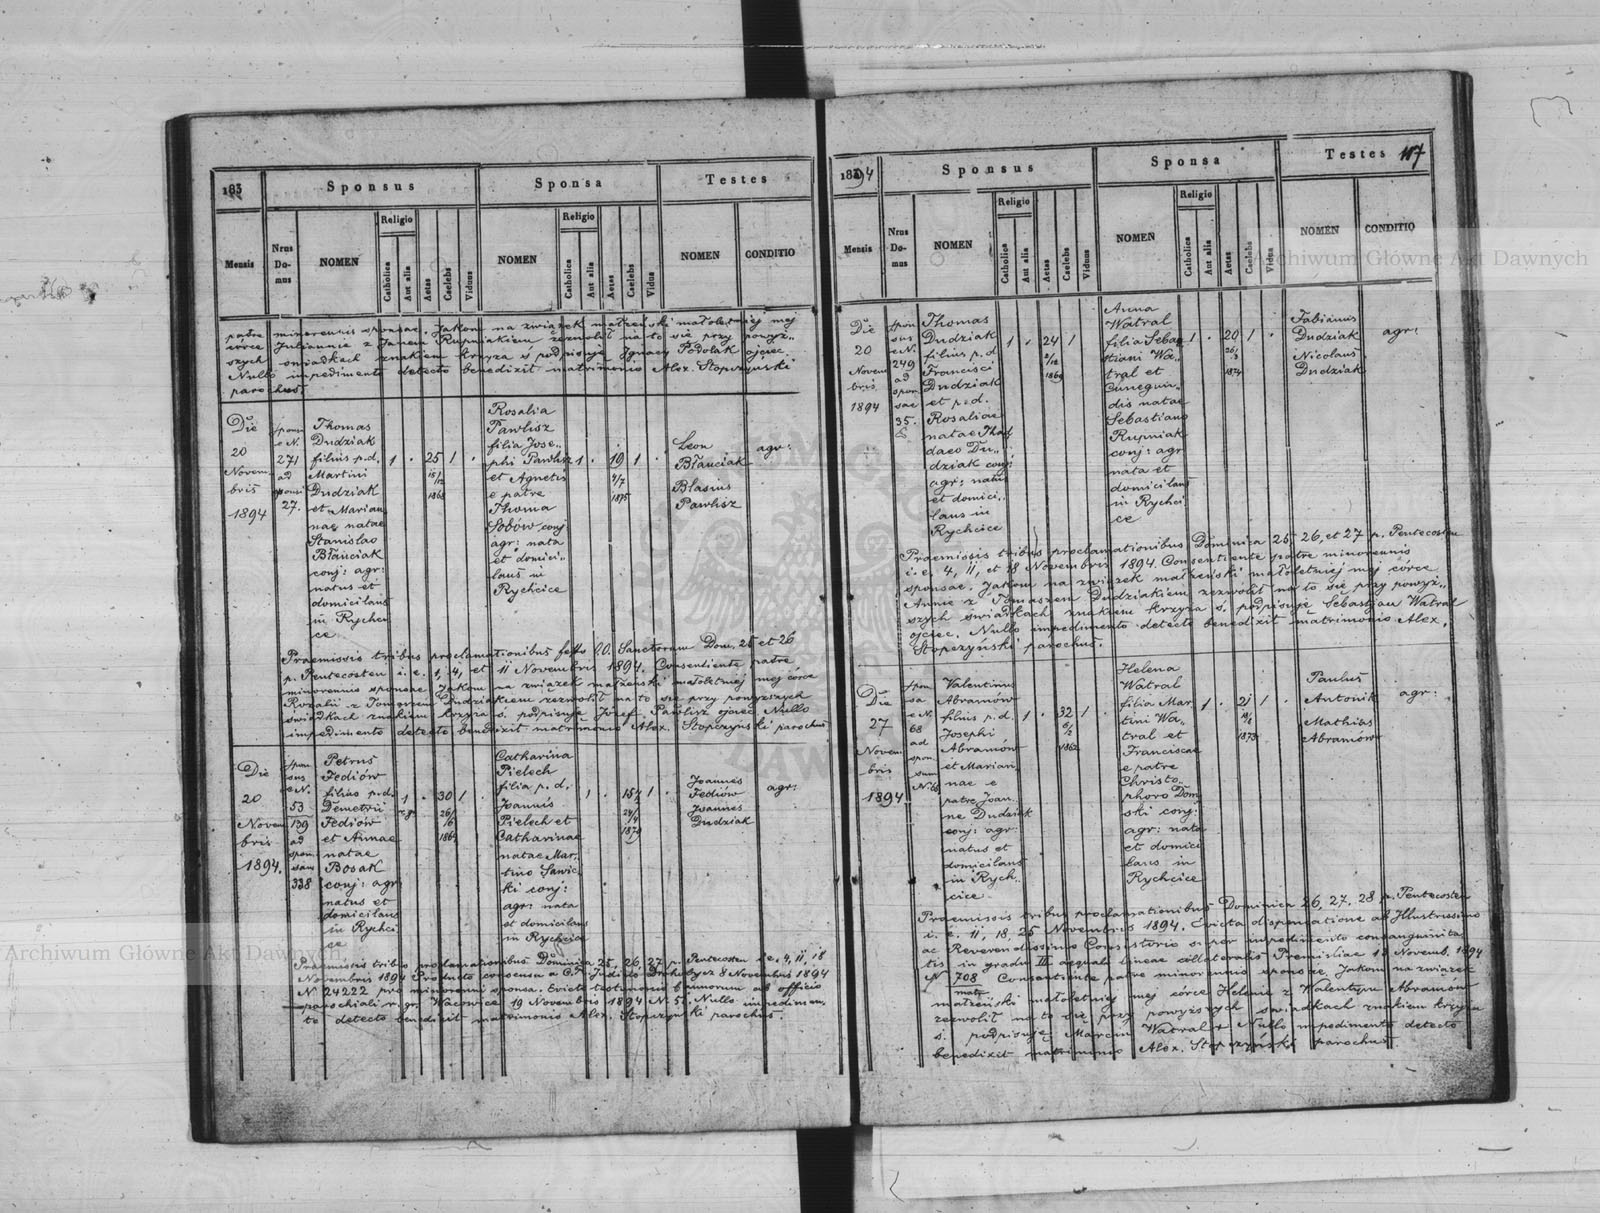 183
Sponsus
Sponsa
Testes
Mensis
Nrus Domus
NOMEN
Religio
Catholica
Aut alia
Aetas
Caelebs
Viduus
NOMEN
Religio
Catholica
Aut alia
Aetas
Caelebs
Vidua
NOMEN
CONDITIO
patre minorennis sponsae. Jakom na związek małżeński małoletniej mej
córce Juliannie z Janem Rupniakiem zezwolił na to się przy powyż„
szych świadkach znakiem krzyża s. podpisuję Ignacy Podolak ojciec.
Nullo impedimento detecto benedixit matrimonio Alex. Stopczyński
parochus.
Die
20
Novem
bris
1894
271
ad
sponsi
27.
Thomas
Dudziak
filius p.d.
Martini
Dudziak
et Marian
nae natae
Stanislao
Błauciak
conj: agr:
natus et
domicilans
in Rychci
ce
1
25
15/12
1868
1
Rosalia
Pawlisz
filia Jose„
phi Pawlisz
et Agnetis
e patre
Thoma
Sobów conj
agr: nata
et domici„
lans in
Rychcice
1
19
4/7
1875
1
Leon
Błauciak
Blasius
Pawlisz
agr:
Praemissis tribus proclamationibus festo O.O. Sanctorum Dom. 25 et 26
p. Pentecosten i. e. 1, 4, et 11 Novembris 1894. Consentiente patre
minorennis sponsae. Jakom na związek małżeński małoletniej mej córce
Rozalii z Tomaszem Dudziakiem zezwolił na to się przy powyższych
świadkach znakiem krzyża s. podpisuję Józef Pawlisz ojciec Nullo
impedimento detecto benedixit matrimonio Alex. Stopczyński parochus
Die
20
Novem
bris
1894.
sponsus
e N.
53
139
ad
spon
sam
338
Petrus
Fediów
filius p.d.
Demetrii
Fediów
et Annae
natae
Bosak
conj: agr:
natus et
domicilans
in Rychci
ce
1
30
26/6
1864
1
Catharina
Pielech
filia p. d.
Joannis
Pielech et
Catharinae
natae Mar„
tino Sawic
ki conj:
agr: nata
et domicilans
in Rychcice
1
1879
1
Joannes
Fediów
Joannes
Dudziak
agr:
Praemissis tribus proclamationibus Dominica 25, 26, 27 p. Pentecosten i.e. 4, 11, 18
Novembris 1894 Producto consensu a C.R. Judicio Drohobycz 8 Novembris 1894
N 24222 pro minorenni sponsa. Evicto testimonio bannorum ab officio
parochiali r. gr. Wacowice 19 Novembris 1894 N. 57. Nullo impedimen„
to detecto benedixit matrimonio Alex. Stopczyński parochus.
1894
Sponsus
Sponsa
Testes
117
Mensis
Nrus Domus
NOMEN
Religio
Catholica
Aut alia
Aetas
Caelebs
Viduus
NOMEN
Religio
Catholica
Aut alia
Aetas
Caelebs
Vidua
NOMEN
CONDITIO
Die
20
Novem
bris
1894
spon
sus
e N.
249
ad
spon
sae
35.
Thomas
Dudziak
filius p. d.
Francisci
Dudziak
et p. d.
Rosaliae
natae Thad
daeo Du„
dziak conj:
agr: natus
et domici„
lans in
Rychcice
1
24
21/12
1869
1
Anna
Watral
filia Sebas
tiani Wa„
tral et
Cunegun„
dis natae
Sebastiano
Rupniak
conj: agr
nata et
domicilans
in Rychci
ce
1
20
26/3
1874
1
Fabianus
Dudziak
Nicolaus
Dudziak
agr:
Praemissis tribus proclamationibus Dominica 25, 26, et 27 p. Pentecosten
i. e. 4, 11, et 18 Novembris 1894. Consentiente patre minorennis
sponsae. Jakom na związek małżeński małoletniej mej córce
Annie z Tomaszem Dudziakiem zezwolił na to się przy powyż„
szych świadkach znakiem krzyża s. podpisuję Sebastjan Watral
ojciec. Nullo impedimento detecto benedixit matrimonio Alex.
Stopczyński parochus.
Die
27
Novem
bris
1894
spon
sa
e N.
68
ad
spon
sum
Valentinus
Abramów
filius p. d.
Josephi
Abramów
et Marian„
nae e
patre Joan„
ne Dudziak
conj: agr:
natus et
domicilans
in Rych„
cice.
1
32
6/2
1862
1
Helena
Watral
filia Mar„
tini Wa„
tral et
Franciscae
e patre
Christo„
phoro Dom
ski conj:
agr: nata
et domici
lans in
Rychcice
1
21
1873
1
Paulus
Antonik
Mathias
Abramów
agr:
Praemissis tribus proclamationibus Dominica 26, 27, 28 p. Pentecosten
i. e. 11, 18, 25 Novembris 1894. Evicta dispensatione ab Illustrissimo
ac Reverendissimo Consistorio super impedimento consanguinita
tis in gradu III aequali lineae collateralis Premisliae 13 Novemb. 1894
N 708 Consentiente patre minorennis sponsae. Jakom na związek
małżeński małoletniej mej córce Helenie z Walentym Abramów
zezwolił na to się przy powyższych świadkach znakiem krzyża
s. podpisuję Marcin Watral + Nullo impedimento detecto
benedixit matrimonio Alex. Stopczyński parochus.
Archiwum Główne Akt Dawnych
Archiwum Główne Akt Dawnych